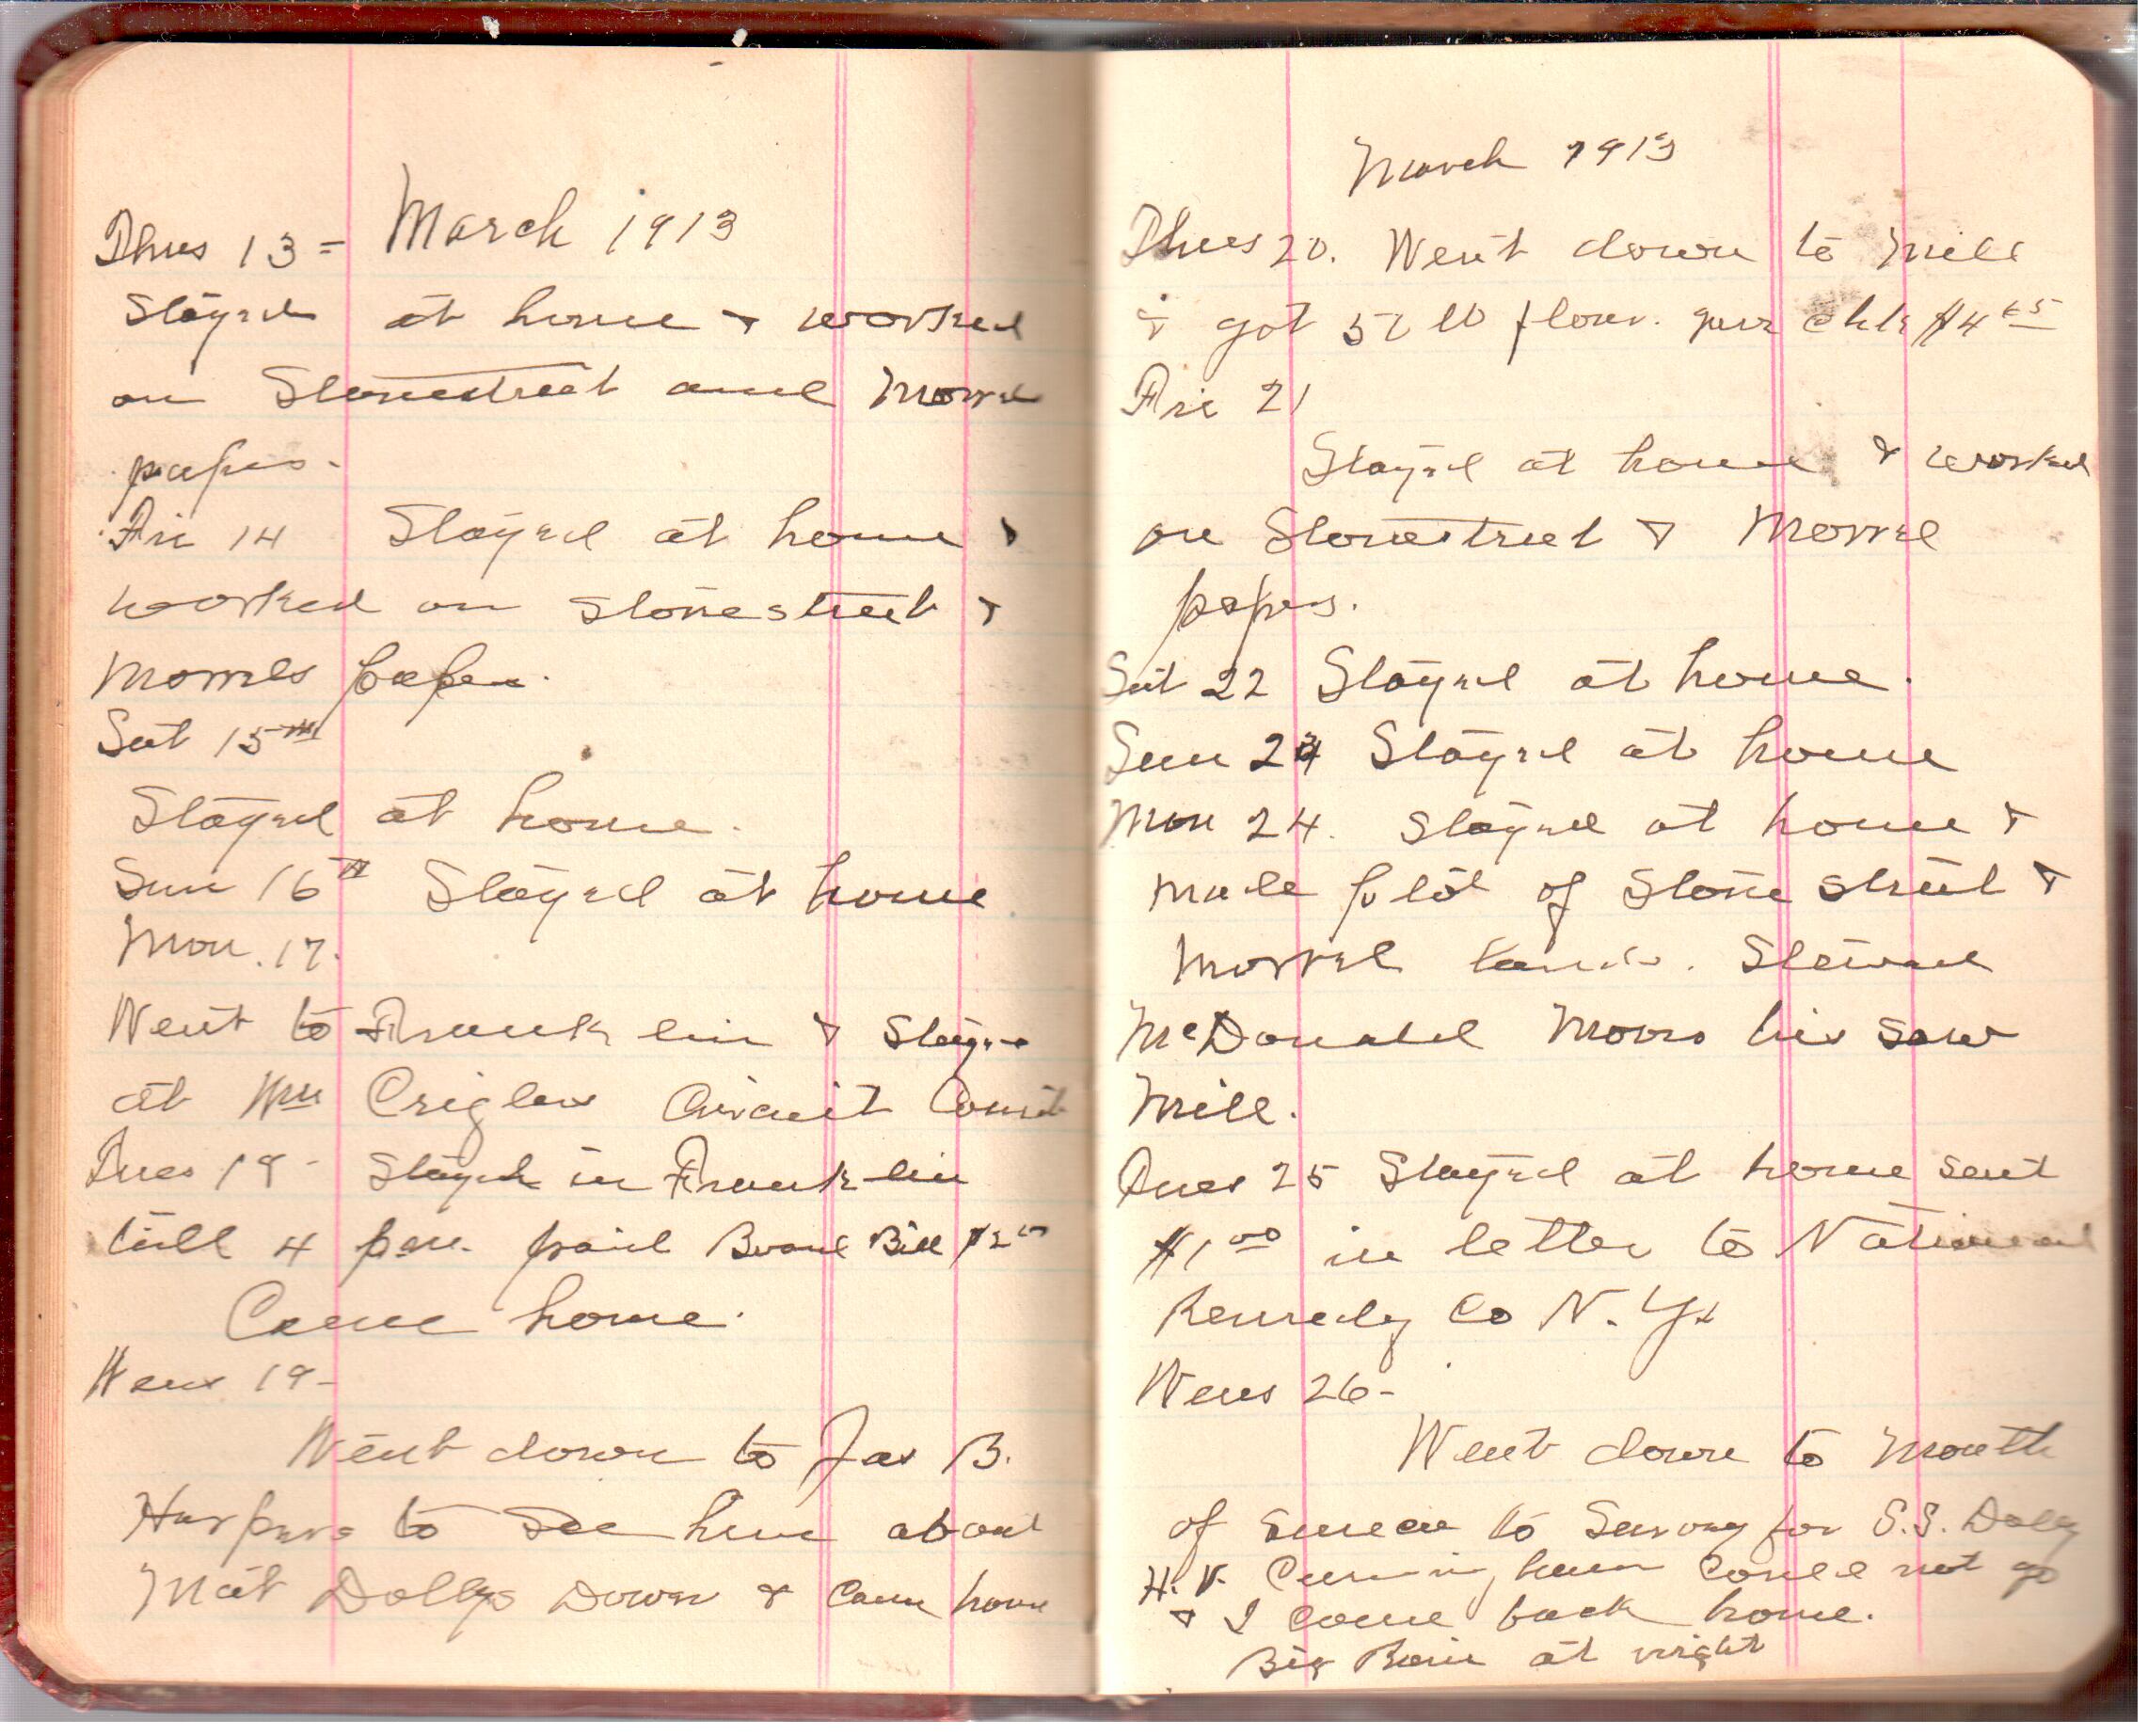 March 1913
Thus 13 =
Stayed at home & worked
on Stonestreet and Morrel
papers.
Fri 14 Stayed at home &
worked on Stonestreet &
Morrels papers.
Sat 15th
Stayed at home.
Sun 16th Stayed at home
Mon. 17.
Went to Franklin & Stayed
at Wm Criglers Circuit Court
Tues 18 - Stayed in Franklin
till 4 pm. paid Board Bill
Came home.
Wens 19-
Went down to Jas B.
Harpers to see him about
Mat Dollys Dower & Came home
March 1913
Thues 20. Went down to Mill
& got flour. gave chk
Fri 21
Stayed at home & worked
on Stonestreet & Morrel
papers.
Sat 22 Stayed at home.
Sun Stayed at home
Mon 24. Stayed at home &
made plot of Stone street &
Morrel lands.
McDonald Moves his saw
Mill.
Tues 25 Stayed at home sent
$1 00 in letter to National
Remedy Co N. Y.
Wens 26-
Went down to Mouth
of Seneca to Survey for S.S. Dolly
H. V. Cunningham Could not go
& I come back home.
Big Rain at night